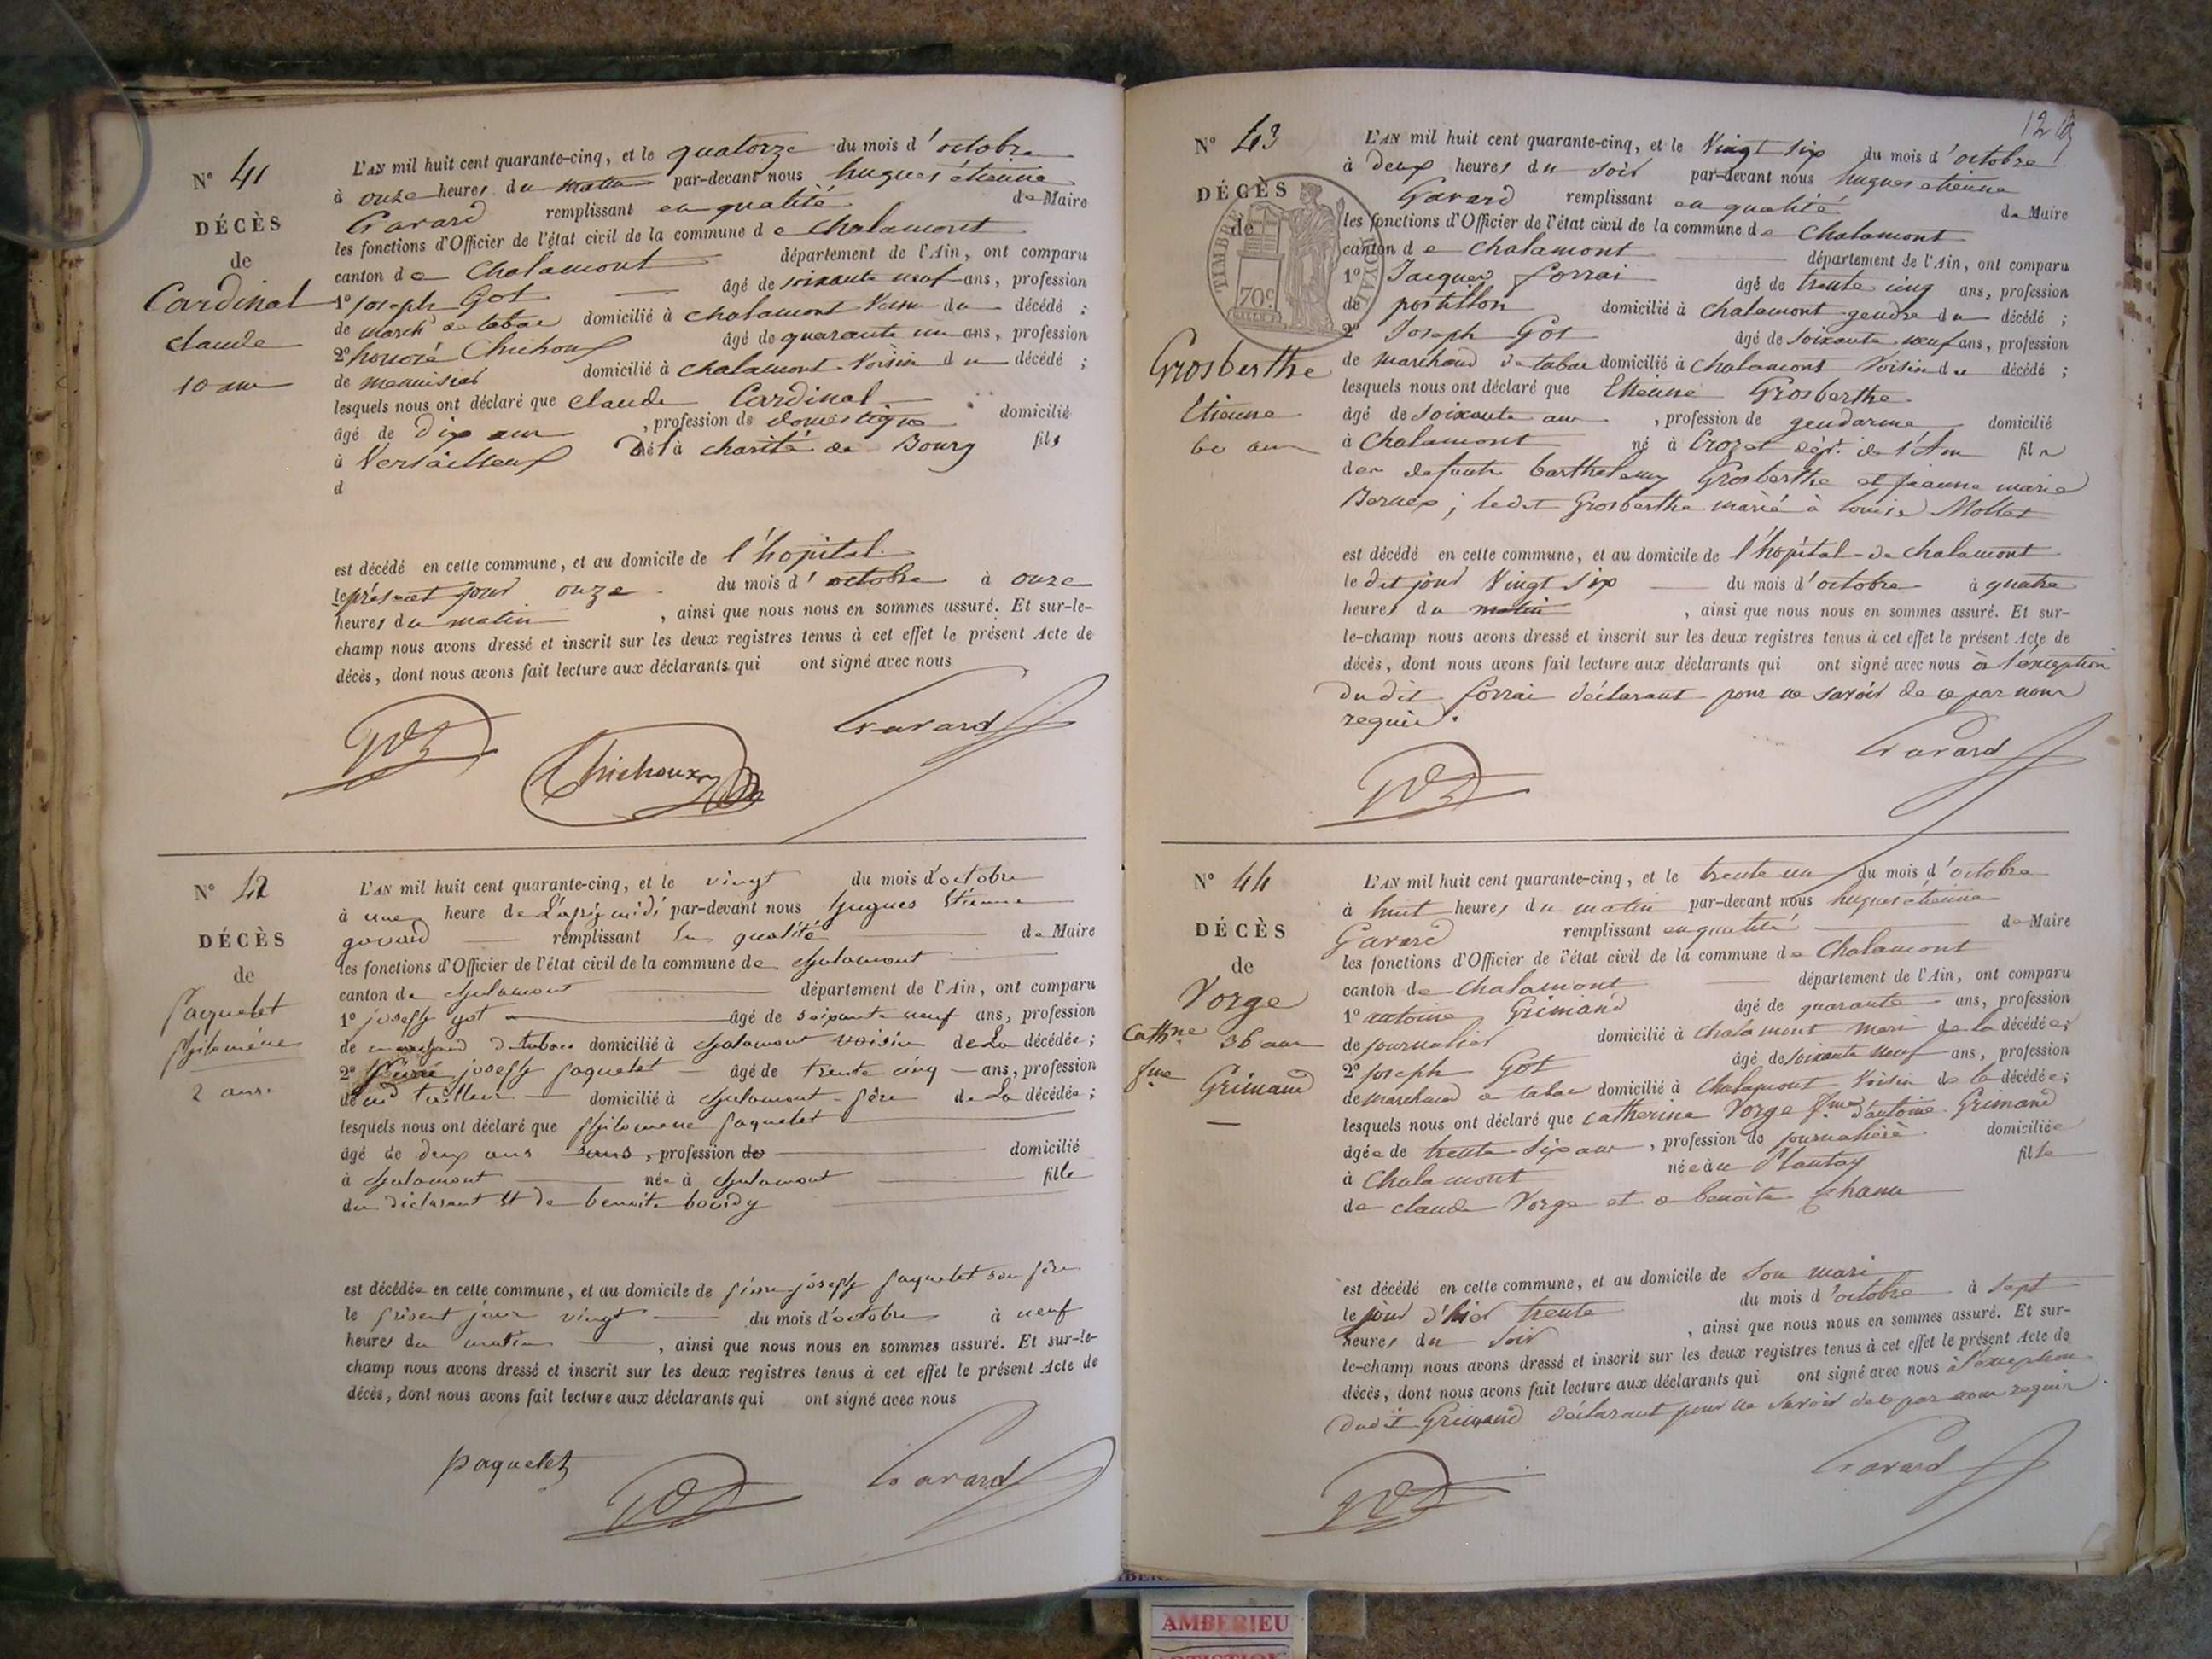 N° 41
DÉCÈS
de
Cardinal
claude
10 ans
L'AN mil huit cent quarante-cinq, et le quatorze du mois d'octobre
à onze heures du matin par-devant nous hugues étienne
Gavard remplissant en qualité de Maire
les fonctions d'Officier de l'état civil de la commune de Chalamont
canton de Chalamont département de l'Ain, ont comparu
1° joseph Got âgé de soixante neuf ans, profession
de march de tabac domicilié à chalamont voisin du décédé ;
2° honoré Chichoux âgé de quarante un ans, profession
de menuisier domicilié à chalamont voisin du décédé ;
lesquels nous ont déclaré que claude Cardinal
âgé de dix ans , profession de domestique domicilié
à Versailleux né à la charité de Bourg fils
d
est décédé en cette commune, et au domicile de l'hopital
le présent jour onze du mois d'octobre à onze
heures du matin , ainsi que nous nous en sommes assuré. Et sur-le-
champ nous avons dressé et inscrit sur les deux registres tenus à cet effet le présent Acte de
décès, dont nous avons fait lecture aux déclarants qui ont signé avec nous
Got
Chichoux
Gavard
N° 42
DÉCÈS
de
paquelet
philomène
2 ans.
L'AN mil huit cent quarante-cinq, et le vingt du mois d'octobre
à une heure de l'après midi par-devant nous hugues Etienne
gavard remplissant en qualité de Maire
les fonctions d'Officier de l'état civil de la commune de chalamont
canton de chalamont département de l'Ain, ont comparu
1° joseph got âgé de soixante neuf ans, profession
de marchand de tabac domicilié à chalamont voisin de La décédée ;
2° pierre joseph paquelet âgé de trente cinq ans, profession
de md tailleur domicilié à chalamont père de La décédée ;
lesquels nous ont déclaré que philomène paquelet
âgé de deux ans sans, profession de domicilié
à chalamont née à chalamont fille
du déclarant et de benoite bourdy
est décédée en cette commune, et au domicile de pierre joseph paquelet son père
le présent jour vingt du mois d'octobre à neuf
heures du matin , ainsi que nous nous en sommes assuré. Et sur-le-
champ nous avons dressé et inscrit sur les deux registres tenus à cet effet le présent Acte de
décès, dont nous avons fait lecture aux déclarants qui ont signé avec nous
paquelet
Got
Gavard
N° 43
DÉCÈS
de
TIMBRE ROYAL
70c
Grosberthe
Etienne
60 ans
L'AN mil huit cent quarante-cinq, et le Vingt six du mois d'octobre
à deux heures du soir par-devant nous hugues etienne
Gavard remplissant en qualité de Maire
les fonctions d'Officier de l'état civil de la commune de Chalamont
canton de chalamont département de l'Ain, ont comparu
1° Jacques forrai âgé de trente cinq ans, profession
de postillon domicilié à chalamont gendre du décédé ;
2° Joseph Got âgé de soixante neuf ans, profession
de marchand de tabac domicilié à chalamont voisin du décédé ;
lesquels nous ont déclaré que Etienne Grosberthe
âgé de soixante ans , profession de gendarme domicilié
à Chalamont né à Crozet dépt. de l'Ain fils
des defunts barthelemy Grosberthe et jeanne marie
; ledit Grosberthe marié à louise Mollet
est décédé en cette commune, et au domicile de l'hôpital de chalamont
le dit jour Vingt six du mois d'octobre à quatre
heures du matin , ainsi que nous nous en sommes assuré. Et sur-
le-champ nous avons dressé et inscrit sur les deux registres tenus à cet effet le présent Acte de
décès, dont nous avons fait lecture aux déclarants qui ont signé avec nous à l'exception
du dit forrai déclarant pour ne savoir de ce par nous
requis.
Got
Gavard
N° 44
DÉCÈS
de
Vorge
Cathne 36 ans
fme Grimand
L'AN mil huit cent quarante-cinq, et le trente un du mois d'octobre
à huit heures du matin par-devant nous hugues étienne
Gavard remplissant en qualité de Maire
les fonctions d'Officier de l'état civil de la commune de Chalamont
canton de chalamont département de l'Ain, ont comparu
1° antoine Grimand âgé de quarante ans, profession
de journalier domicilié à chalamont mari de la décédée ;
2° joseph Got âgé de soixante neuf ans, profession
de marchand de tabac domicilié à Chalamont voisin de la décédée ;
lesquels nous ont déclaré que catherine Vorge fme d'antoine Grimand
âgée de trente six ans , profession de journalière domiciliée
à Chalamont née au Plantay fille
de claude Vorge et de benoîte
est décédé en cette commune, et au domicile de son mari
le jour d'hier trente du mois d'octobre à sept
heures du soir , ainsi que nous nous en sommes assuré. Et sur-
le-champ nous avons dressé et inscrit sur les deux registres tenus à cet effet le présent Acte de
décès, dont nous avons fait lecture aux déclarants qui ont signé avec nous à l'exception
dudit Grimand déclarant pour ne savoir de ce par nous requis.
Got
Gavard
AMBERIEU